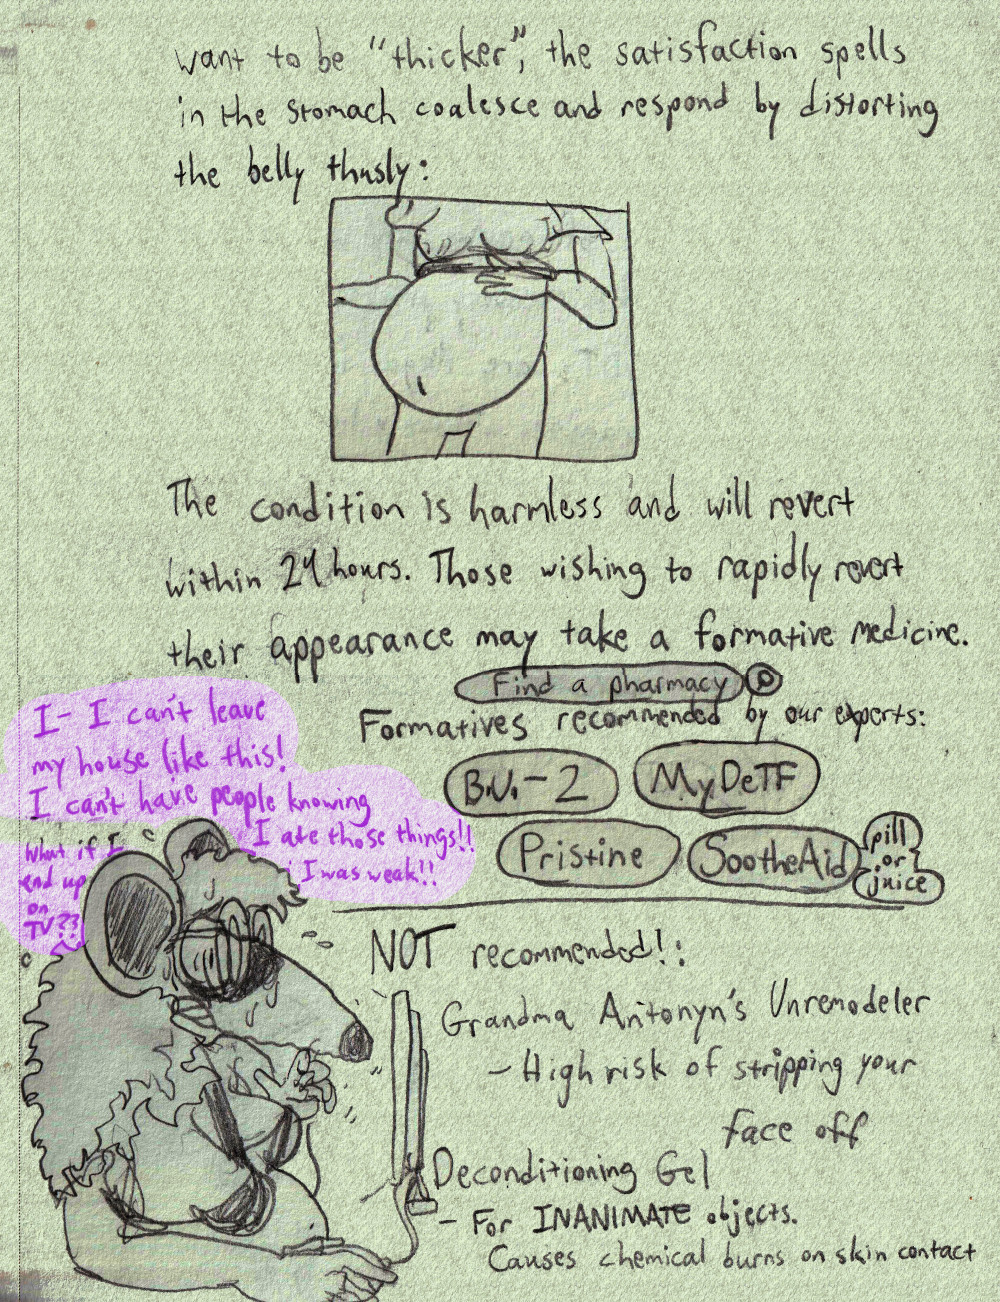 want to be "thicker", the satisfaction spells
in the stomach coalesce and respond by distorting
the belly thusly:
The condition is harmless and will revert
within 24 hours. Those wishing to rapidly revert
their appearance may take a formative medicine.
Find a pharmacy
Formatives recommended by our experts:
B.U.-2
MyDeTF
Pristine
SootheAid
pill
or
juice
I- I can't leave
my house like this!
I can't have people knowing
I ate those things!!
I was weak!!
What if I
end up
on
TV??
NOT recommended!:
Grandma Antonyn's Unremodeler
- High risk of stripping your
face off
Deconditioning Gel
- For INANIMATE objects.
Causes chemical burns on skin contact